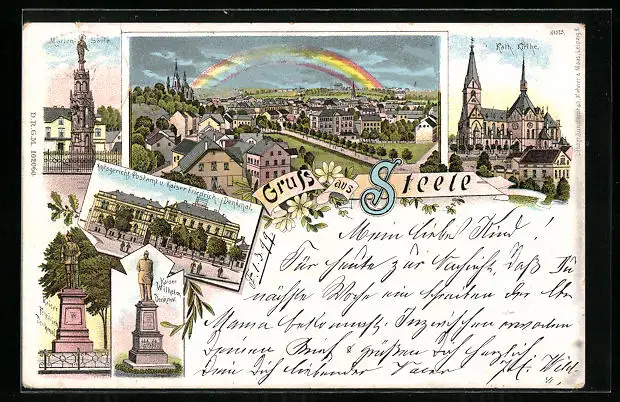 Marien-Säule
Kath. Kirche.
D.R.G.M. 102060.
Amtsgericht, Postamt u. Kaiser Friedrich-Denkmal.
Gruss aus Steele
Kaiser
Wilhelm
Denkmal
Mein liebes Kind!
Für heute zur Nachricht, daß Du
nächste Woche ein schreiben der lben
Mama bekommst. Inzwischen erwarten
Deinen Brief & grüßen Dich herzlich
Dein Dich liebender Vater